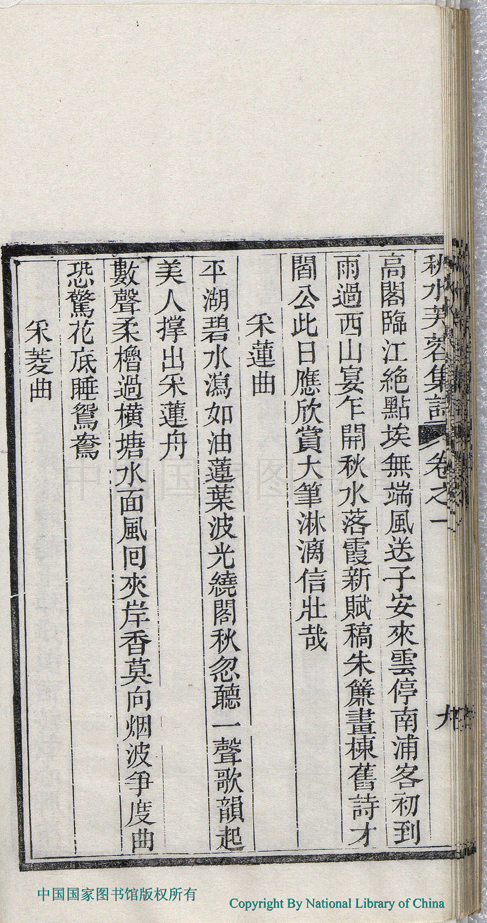 秋水芙蓉集詩 卷之一 九
高閣臨江絶點埃無端風送子安來雲停南浦客初到
雨過西山宴乍開秋水落霞新賦稿朱簾畫棟舊詩才
閻公此日應欣賞大筆淋漓信壯哉
采蓮曲
平湖碧水瀉如油蓮葉波光繞閣秋忽聽一聲歌韻起
美人撐出采蓮舟
數聲柔櫓過橫塘水面風囘夾岸香莫向烟波爭度曲
恐驚花底睡鴛鴦
采菱曲
中国国家图书馆版权所有
Copyright By National Library of China